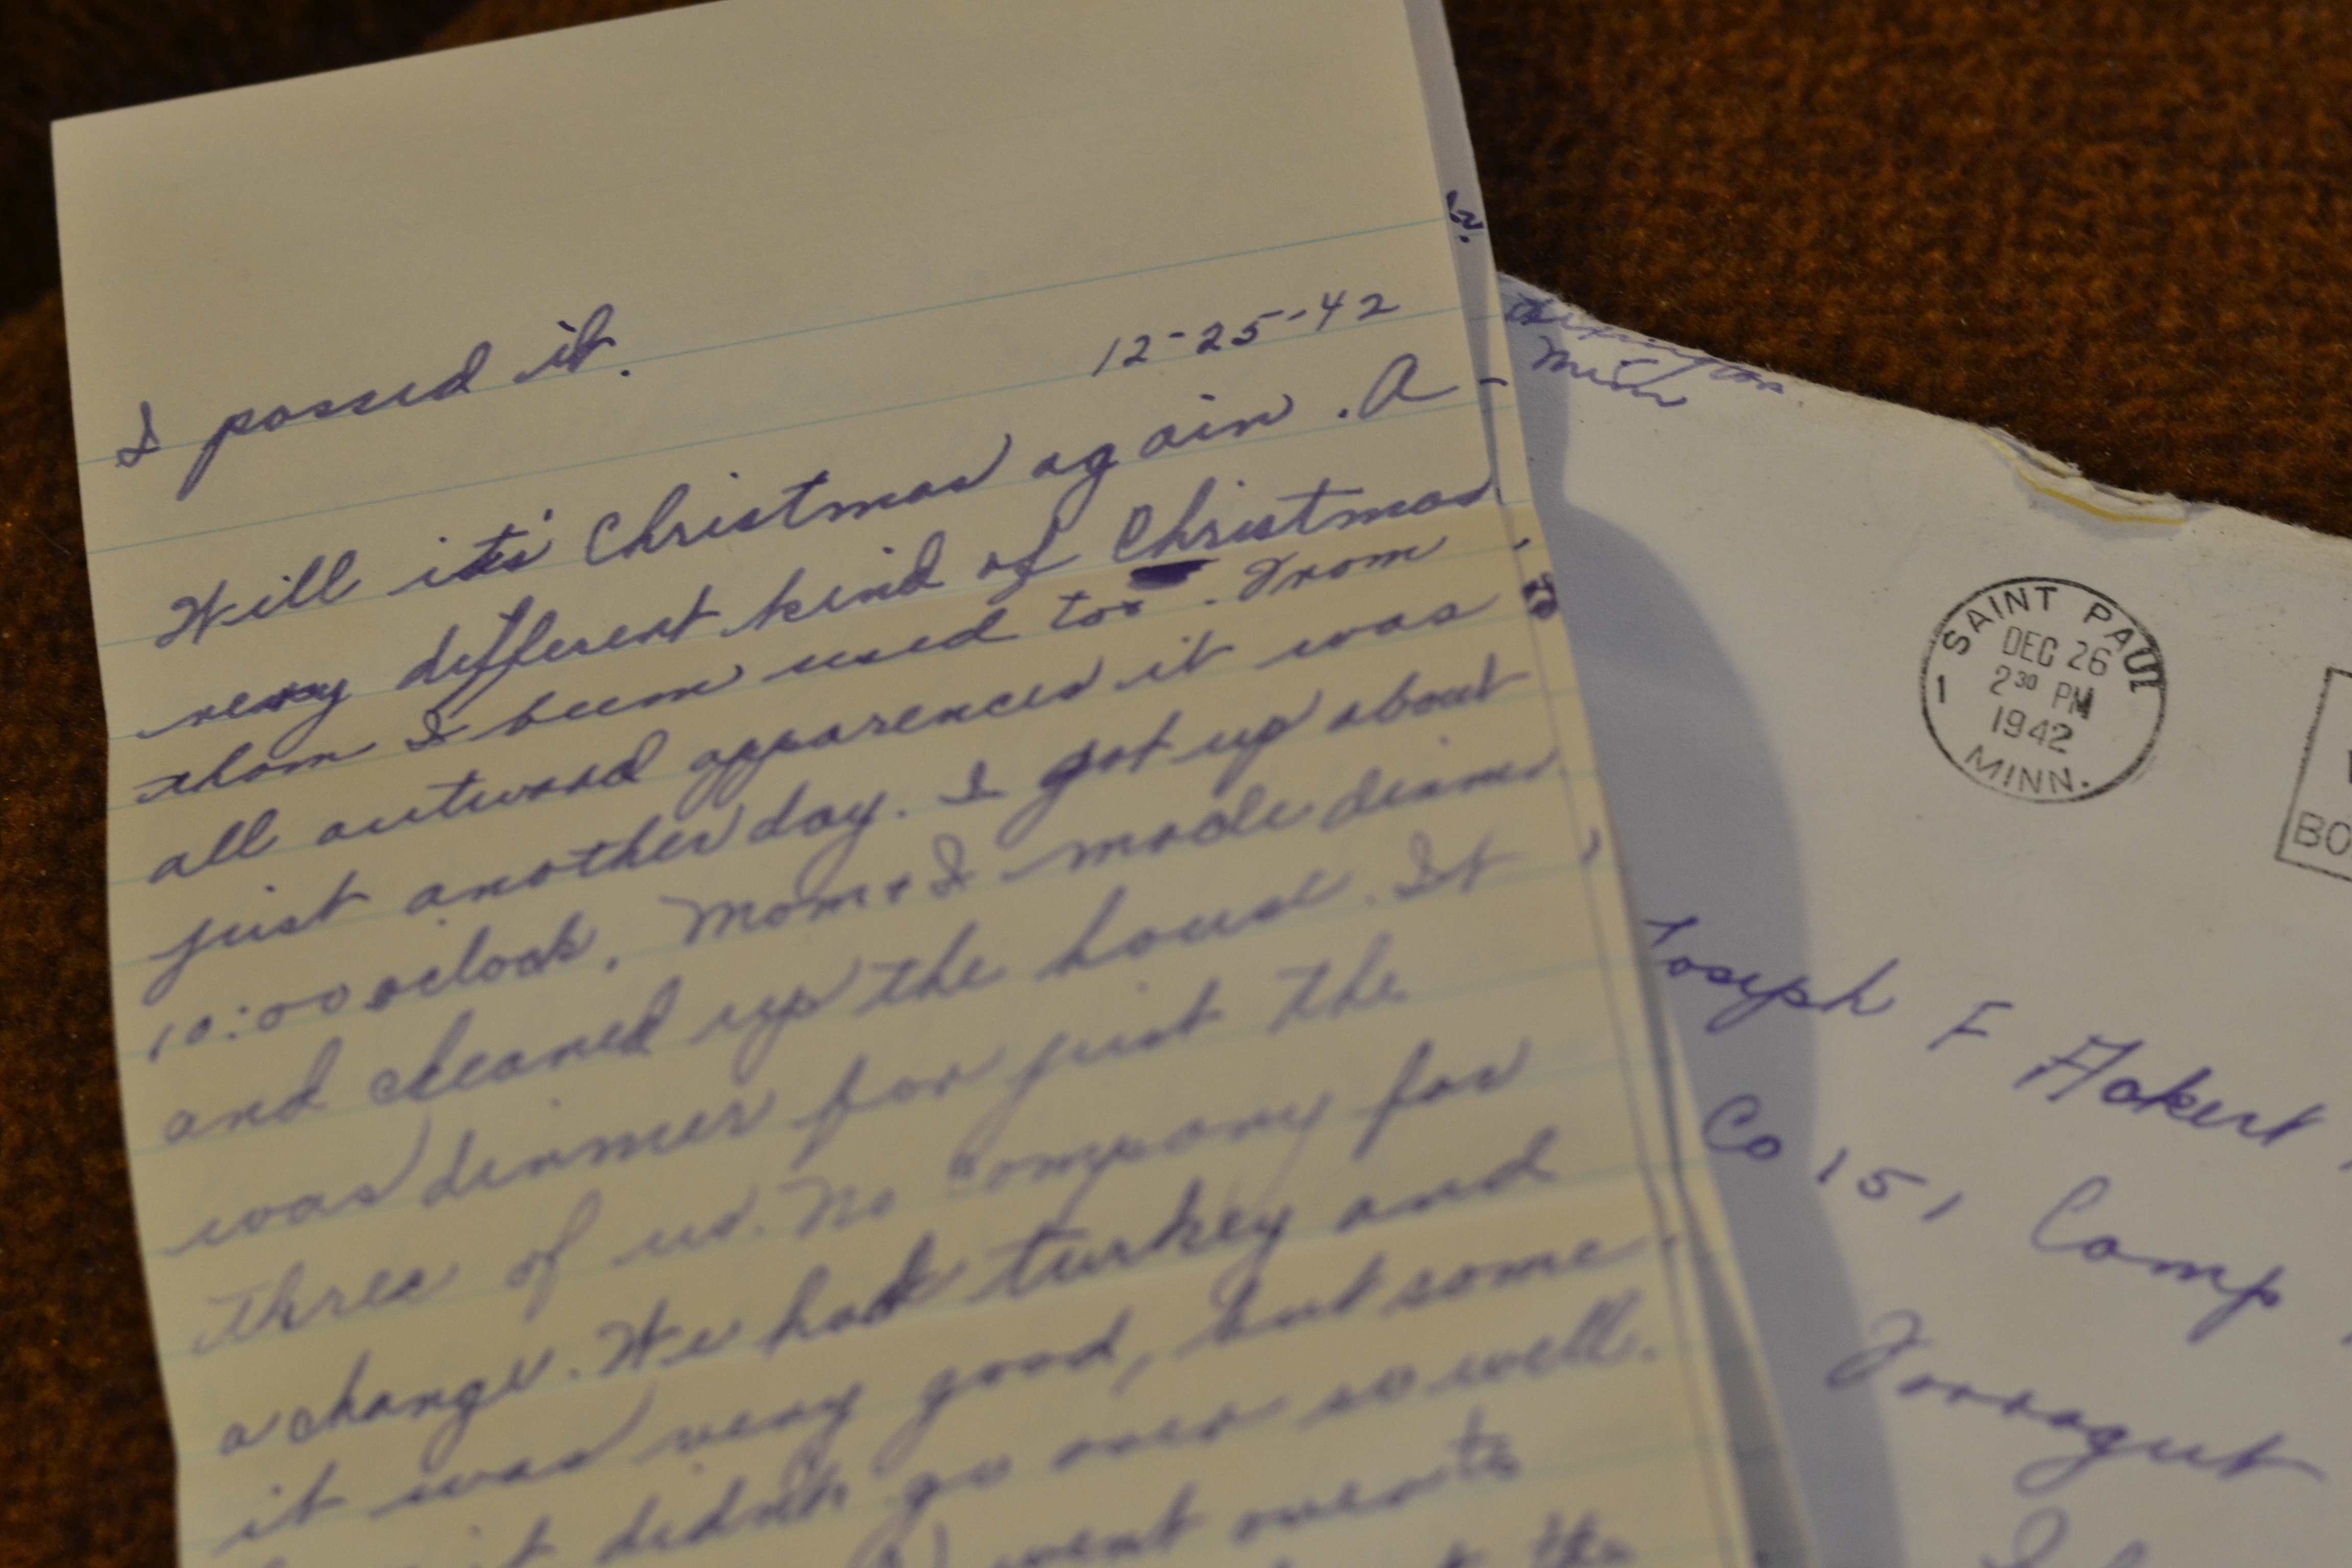 I passed it.
12-25-42
Well its' Christmas again. A
very different kind of Christmas
than I been used to. From
all outward apparences it was
just another day. I got up about
10:00 oclock. Mom & I made dinner
and cleaned up the house. It
was dinner for just the
three of us. No company for
a change. We had turkey and
it was very good, but some
it didn't go over so well.
went over to
the
Minn
SAINT PAUL
DEC 26
2 30 PM
1942
MINN.
1
BO
Joseph F
Co 151 Camp
Farragut